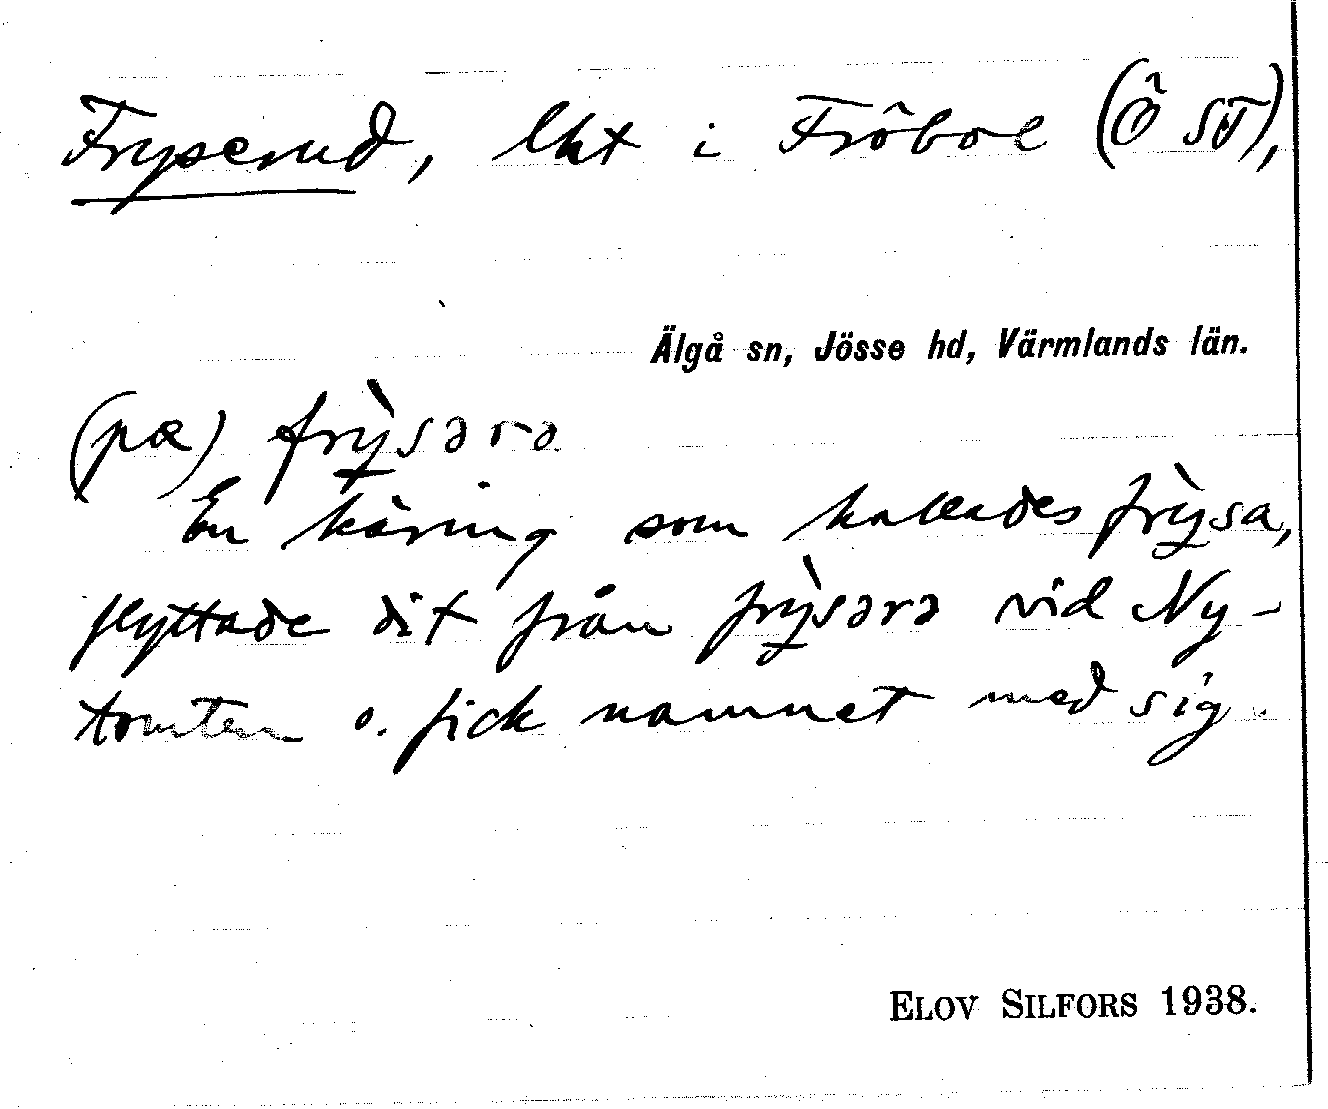 Fryserud, lht i Fröbol (Ö ST),
Älgå sn, Jösse hd, Värmlands län.
(pæ) frỳsərə
En käring som kallades frỳsa,
flyttade dit från frỳsərə vid Ny-
tomten o. fick namnet med sig.
ELOV SILFORS 1938.